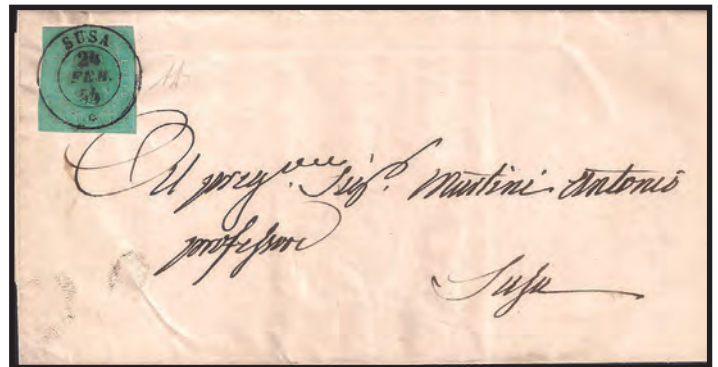 SUSA
24
FEB.
54
Al preg.mo Sig.r Martini Antonio
professore
Susa